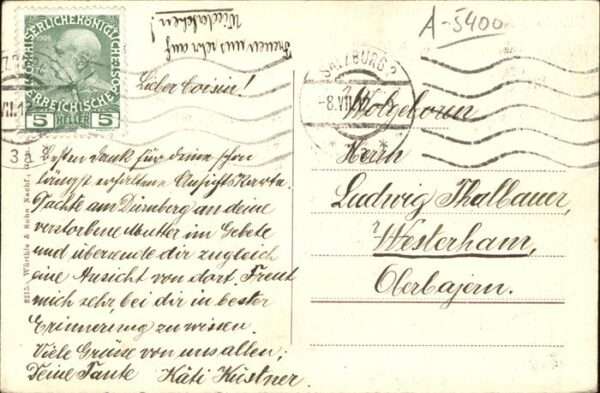 A-5400
Freuen uns sehr auf
Wiedersehen!
KAISERLICHE KÖNIGLICHE
ÖSTERREICHISCHE
5 HELLER 5
SALZBURG 2
-8.VII.
3a
Lieber Cousin!
Besten Dank für deine schon
längst erhaltene Ansichtskarte.
Dachte am Dürnberg an deine
verstorbene Mutter im Gebete
und übersende dir zugleich
eine Ansicht von dort. Freut
mich sehr, bei dir in bester
Erinnerung zu wissen.
Viele Grüsse von uns allen,
Deine Tante Käti Küstner.
Wolgeborn
Herrn
Ludwig Thalbauer,
Westerham,
Oberbajern.
Würthle & Sohn Nachf.